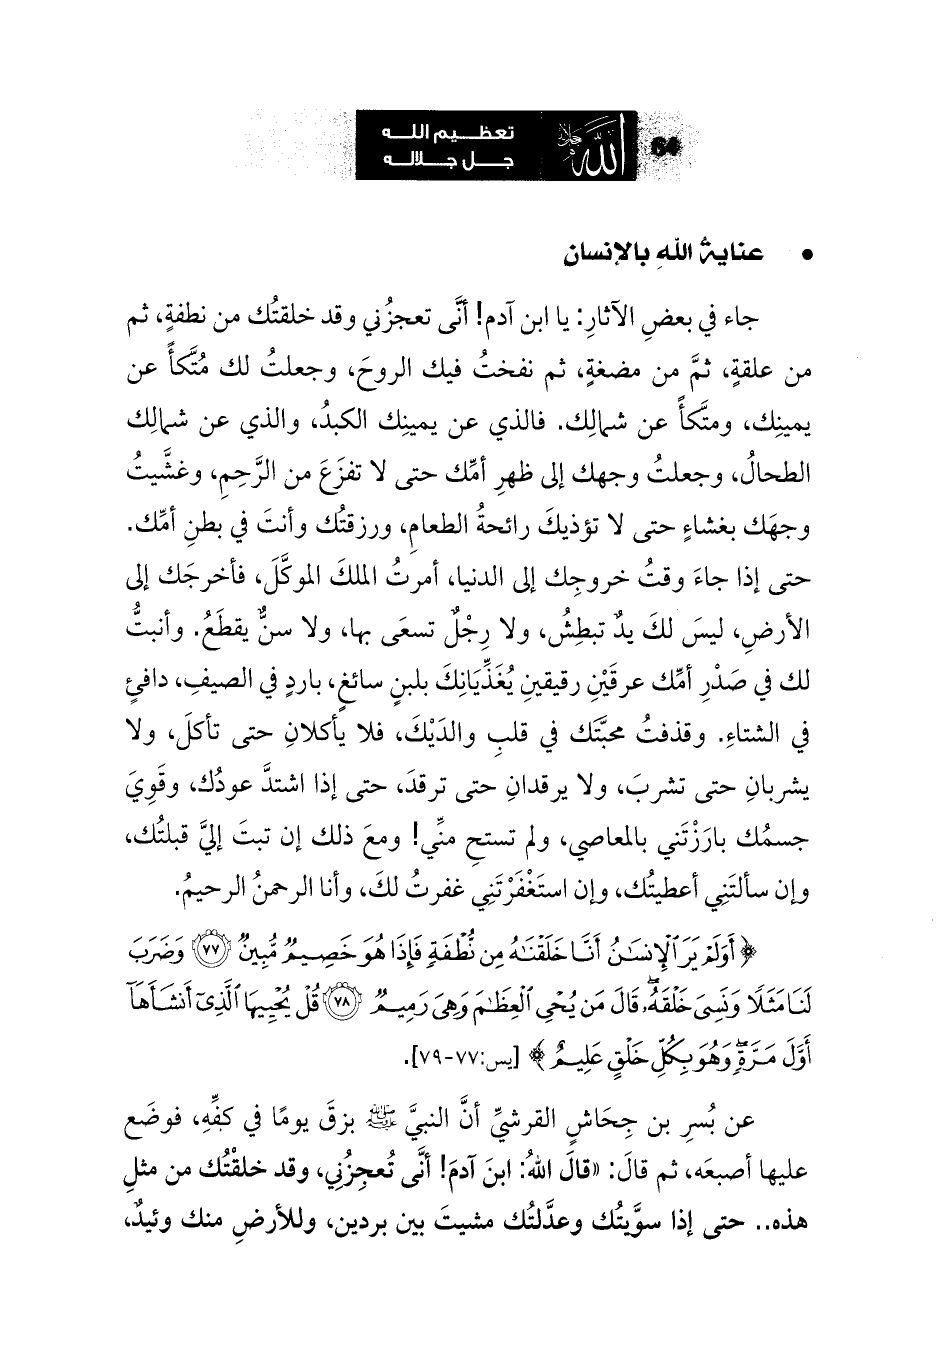 64
الله جل جلاله
تعظيم الله
جل جلاله
• عنايةُ اللهِ بالإنسان
جاء في بعضِ الآثارِ: يا ابن آدم! أنَّى تعجزُني وقد خلقتُك من نطفةٍ، ثم
من علقةٍ، ثمَّ من مضغةٍ، ثم نفختُ فيك الروحَ، وجعلتُ لك مُتَّكأً عن
يمينِك، ومتَّكأً عن شمالِك. فالذي عن يمينِك الكبدُ، والذي عن شمالِك
الطحالُ، وجعلتُ وجهك إلى ظهرِ أمِّك حتى لا تفزَعَ من الرَّحِمِ، وغشَّيتُ
وجهَك بغشاءٍ حتى لا تؤذيكَ رائحةُ الطعامِ، ورزقتُك وأنتَ في بطنِ أمِّك.
حتى إذا جاءَ وقتُ خروجِك إلى الدنيا، أمرتُ الملكَ الموكَّلَ، فأخرجَك إلى
الأرضِ، ليسَ لكَ يدٌ تبطِشُ، ولا رِجْلٌ تسعَى بها، ولا سنٌّ يقطَعُ. وأنبتُّ
لك في صَدْرِ أمِّك عرقَيْنِ رقيقينِ يُغَذِّيَانِكَ بلبنٍ سائغٍ، باردٍ في الصيفِ، دافئٍ
في الشتاءِ. وقذفتُ محبَّتَك في قلبِ والدَيْكَ، فلا يأكلانِ حتى تأكلَ، ولا
يشربانِ حتى تشربَ، ولا يرقدانِ حتى ترقدَ، حتى إذا اشتدَّ عودُك، وقَوِيَ
جسمُك بارَزْتَني بالمعاصي، ولم تستحِ منِّي! ومعَ ذلك إن تبتَ إليَّ قبلتُك،
وإن سألتَنِي أعطيتُك، وإن استَغْفَرْتَنِي غفرتُ لكَ، وأنا الرحمنُ الرحيمُ.
﴿أَوَلَمْ يَرَ ٱلْإِنسَـٰنُ أَنَّا خَلَقْنَـٰهُ مِن نُّطْفَةٍ فَإِذَا هُوَ خَصِيمٌ مُّبِينٌ ۝٧٧ وَضَرَبَ
لَنَا مَثَلًا وَنَسِىَ خَلْقَهُۥ ۖ قَالَ مَن يُحْىِ ٱلْعِظَـٰمَ وَهِىَ رَمِيمٌ ۝٧٨ قُلْ يُحْيِيهَا ٱلَّذِىٓ أَنشَأَهَآ
أَوَّلَ مَرَّةٍ ۖ وَهُوَ بِكُلِّ خَلْقٍ عَلِيمٌ﴾ [يس:٧٧-٧٩].
عن بُسرِ بن جِحَاشٍ القرشيِّ أنَّ النبيَّ ﷺ بزقَ يومًا في كفِّهِ، فوضَع
عليها أصبعَه، ثم قالَ: «قالَ اللهُ: ابنَ آدمَ! أنَّى تُعجزُني، وقد خلقْتُك من مثلِ
هذه.. حتى إذا سوَّيتُك وعدَّلتُك مشيتَ بين بردين، وللأرضِ منك وئيدٌ،